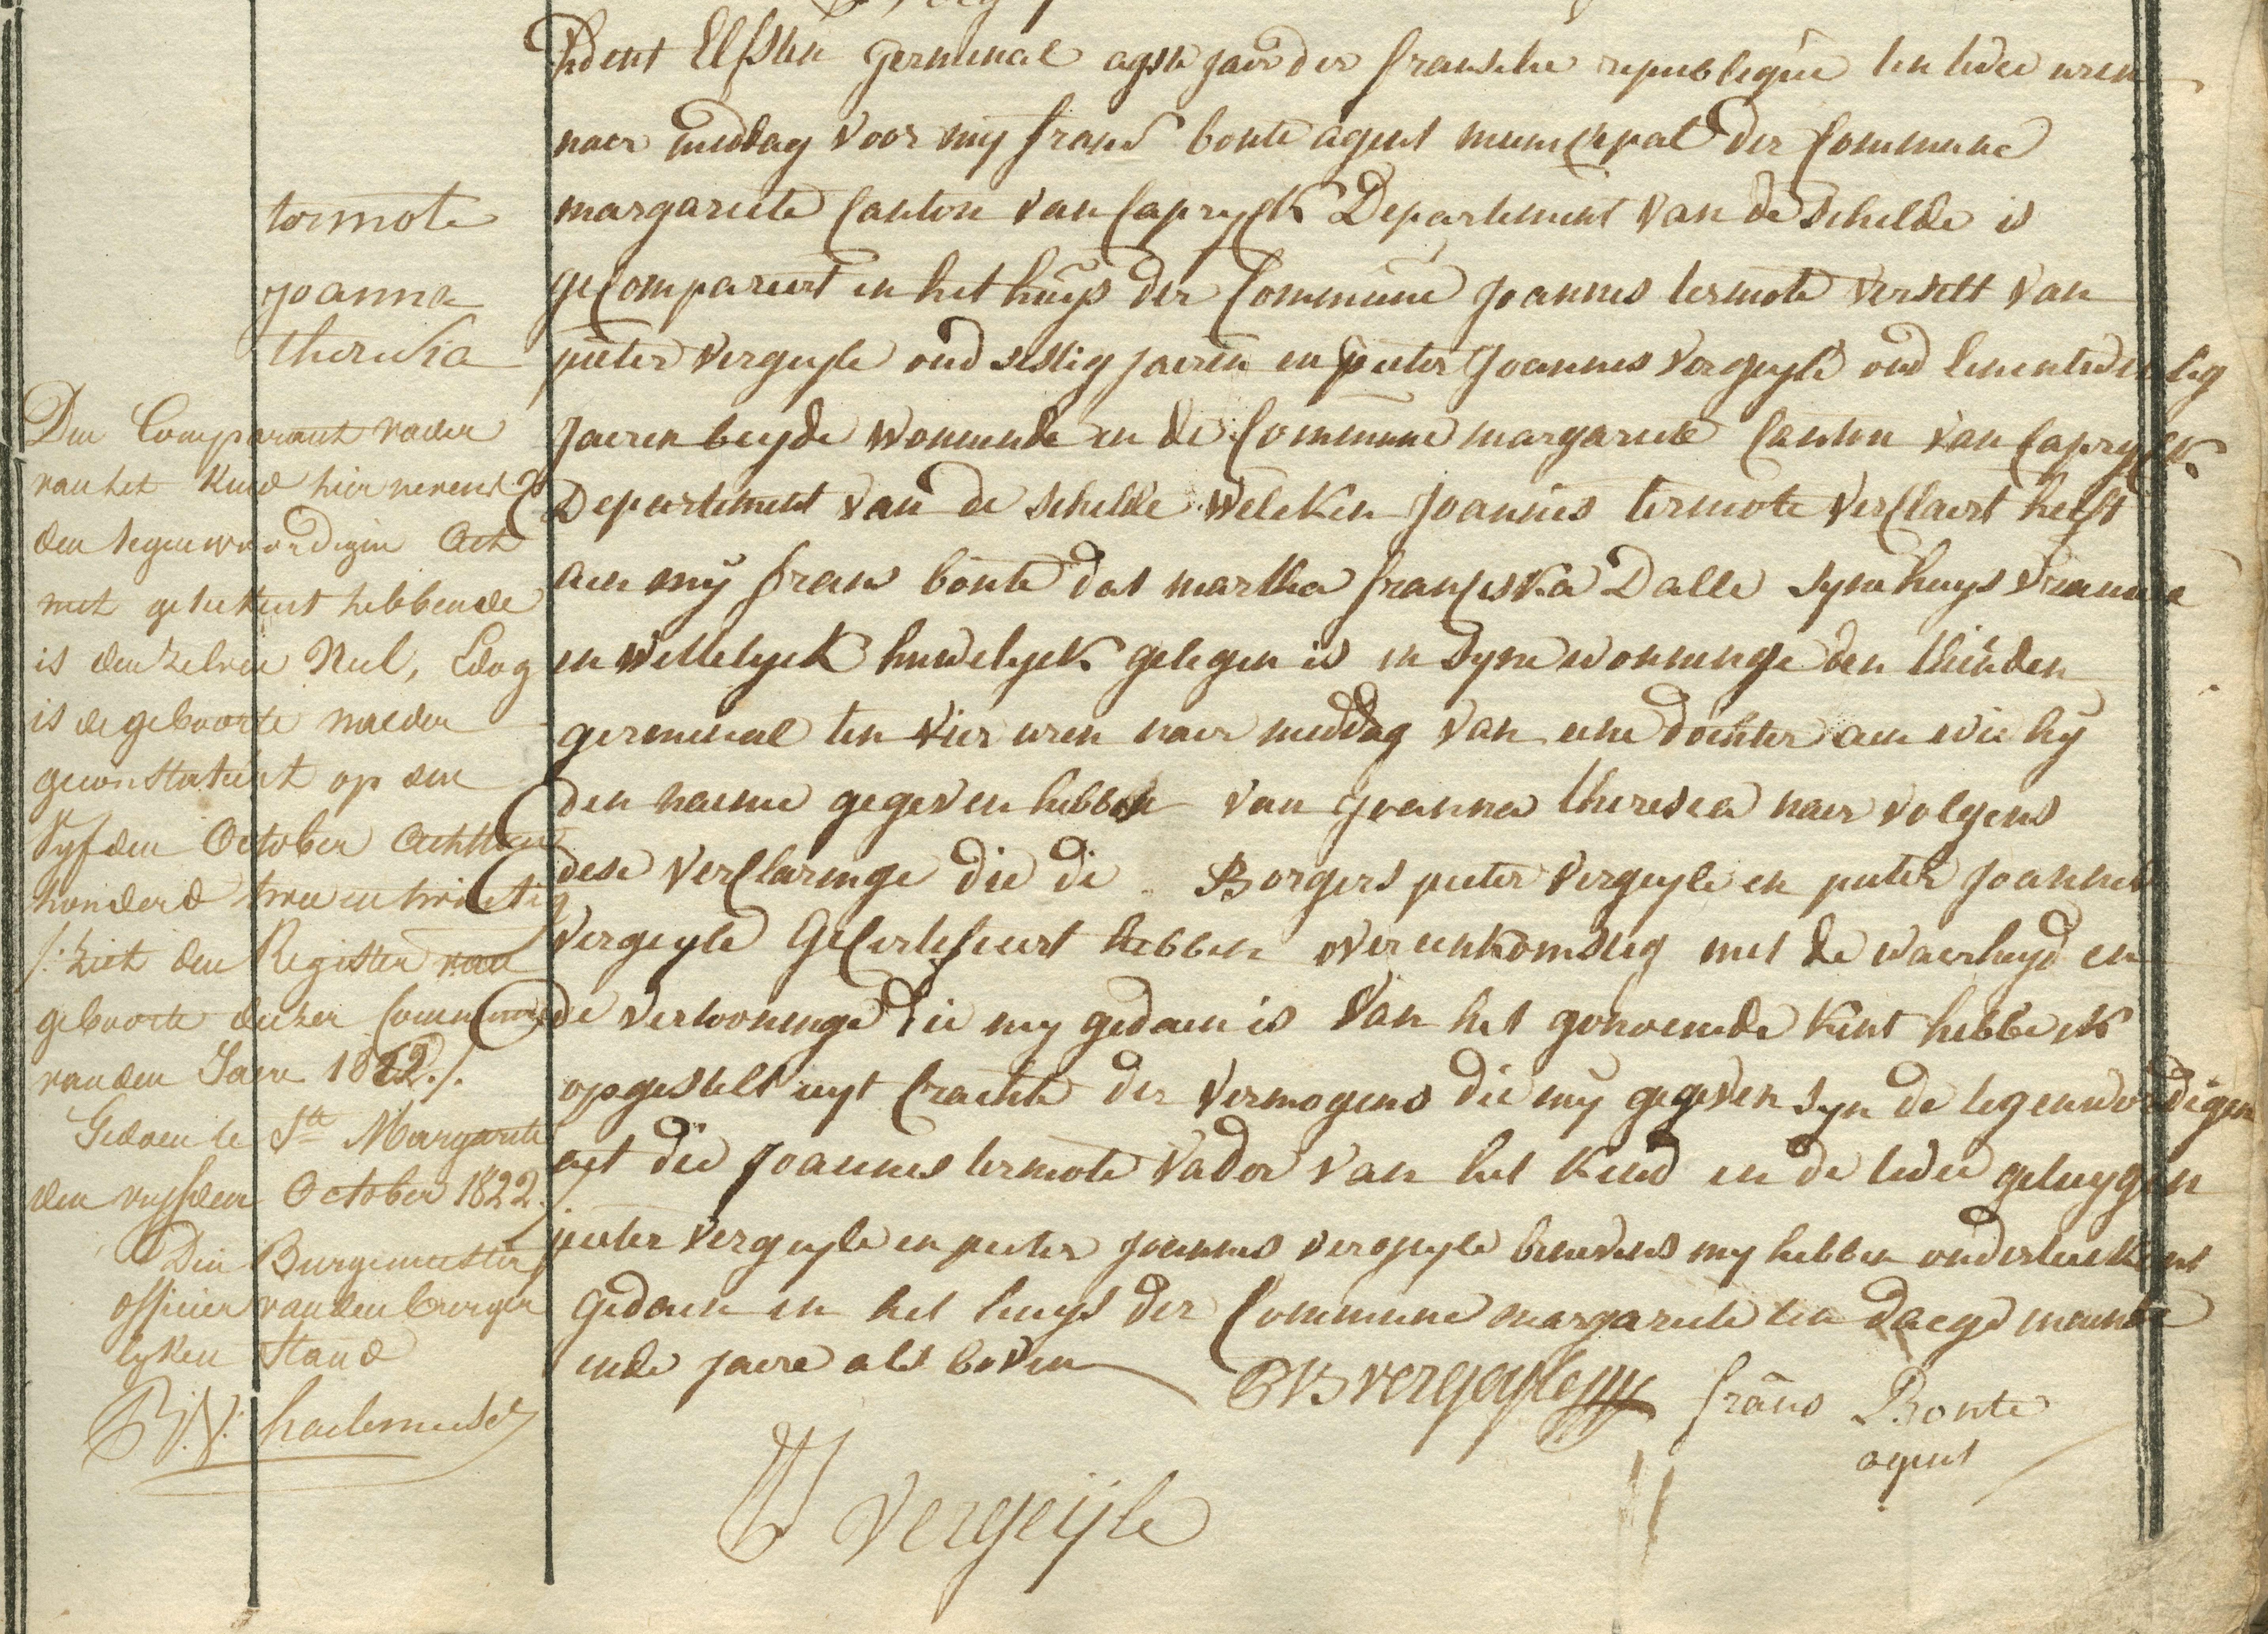 tormote
joanna
theresia
Den Comparant vader
van het Kind hier nevens
den tegenwoordigen Act
niet geteekent hebbende
is denzelven Nul, Edog
is de geboorte nader
geconstateert op den
Vyfden October Achttien
honderd twee en twintig
/: ziet den Register van
geboorte dezer Commune
van den Jaere 1822 ./.
Gedaen te Ste Margarite
den vyfden October 1822.
Den Burgemeester
officier van den burger
lyken Stand
hent Elfsten germinal agste jaer der fransche republique ten twee uren
naer middag voor my frans bonte agent municipal der Commune
margariete Canton van Capryck Departement van de Schelde is
geCompareert in het huys der Commune joannes termote verselt van
pieter vergeyle oud sestig jaeren en pieter joannes vergeyle oud sevenentwintig
jaeren beyde wonende in de Commune margariete Canton van Capryck
Departement van de schelde welcken joannes termote verClaert heeft
aen my frans bonte dat martha franciska Dalle syne huys vrauwe
in wettelyck huwelyck gelegen is in syne woninge den thienden
germinal ten vier uren naer middag van eene dochter aen wie hy
den naeme gegeven hebben van joanna theresia naer volgens
dese verClaringe die de Borgers pieter vergeyle en pieter joannes
vergeyle GeCertifieert hebben overeenkomstig met de waerheyd en
de vertooninge die my gedaen is van het genoemde kint hebbe ik
opgestelt uyt Crachte der vermogens die my gegeven syn de tegenwordigen
act die joannes termote vader van het kind en de twee getuygen
pieter vergeyle en pieter joannes vergeyle benevens my hebben onderteekent
gedaen in het huys der Commune margariete ten daege maende
ende jaere als boven
vergeyle frans Bonte
agent
vergeijle